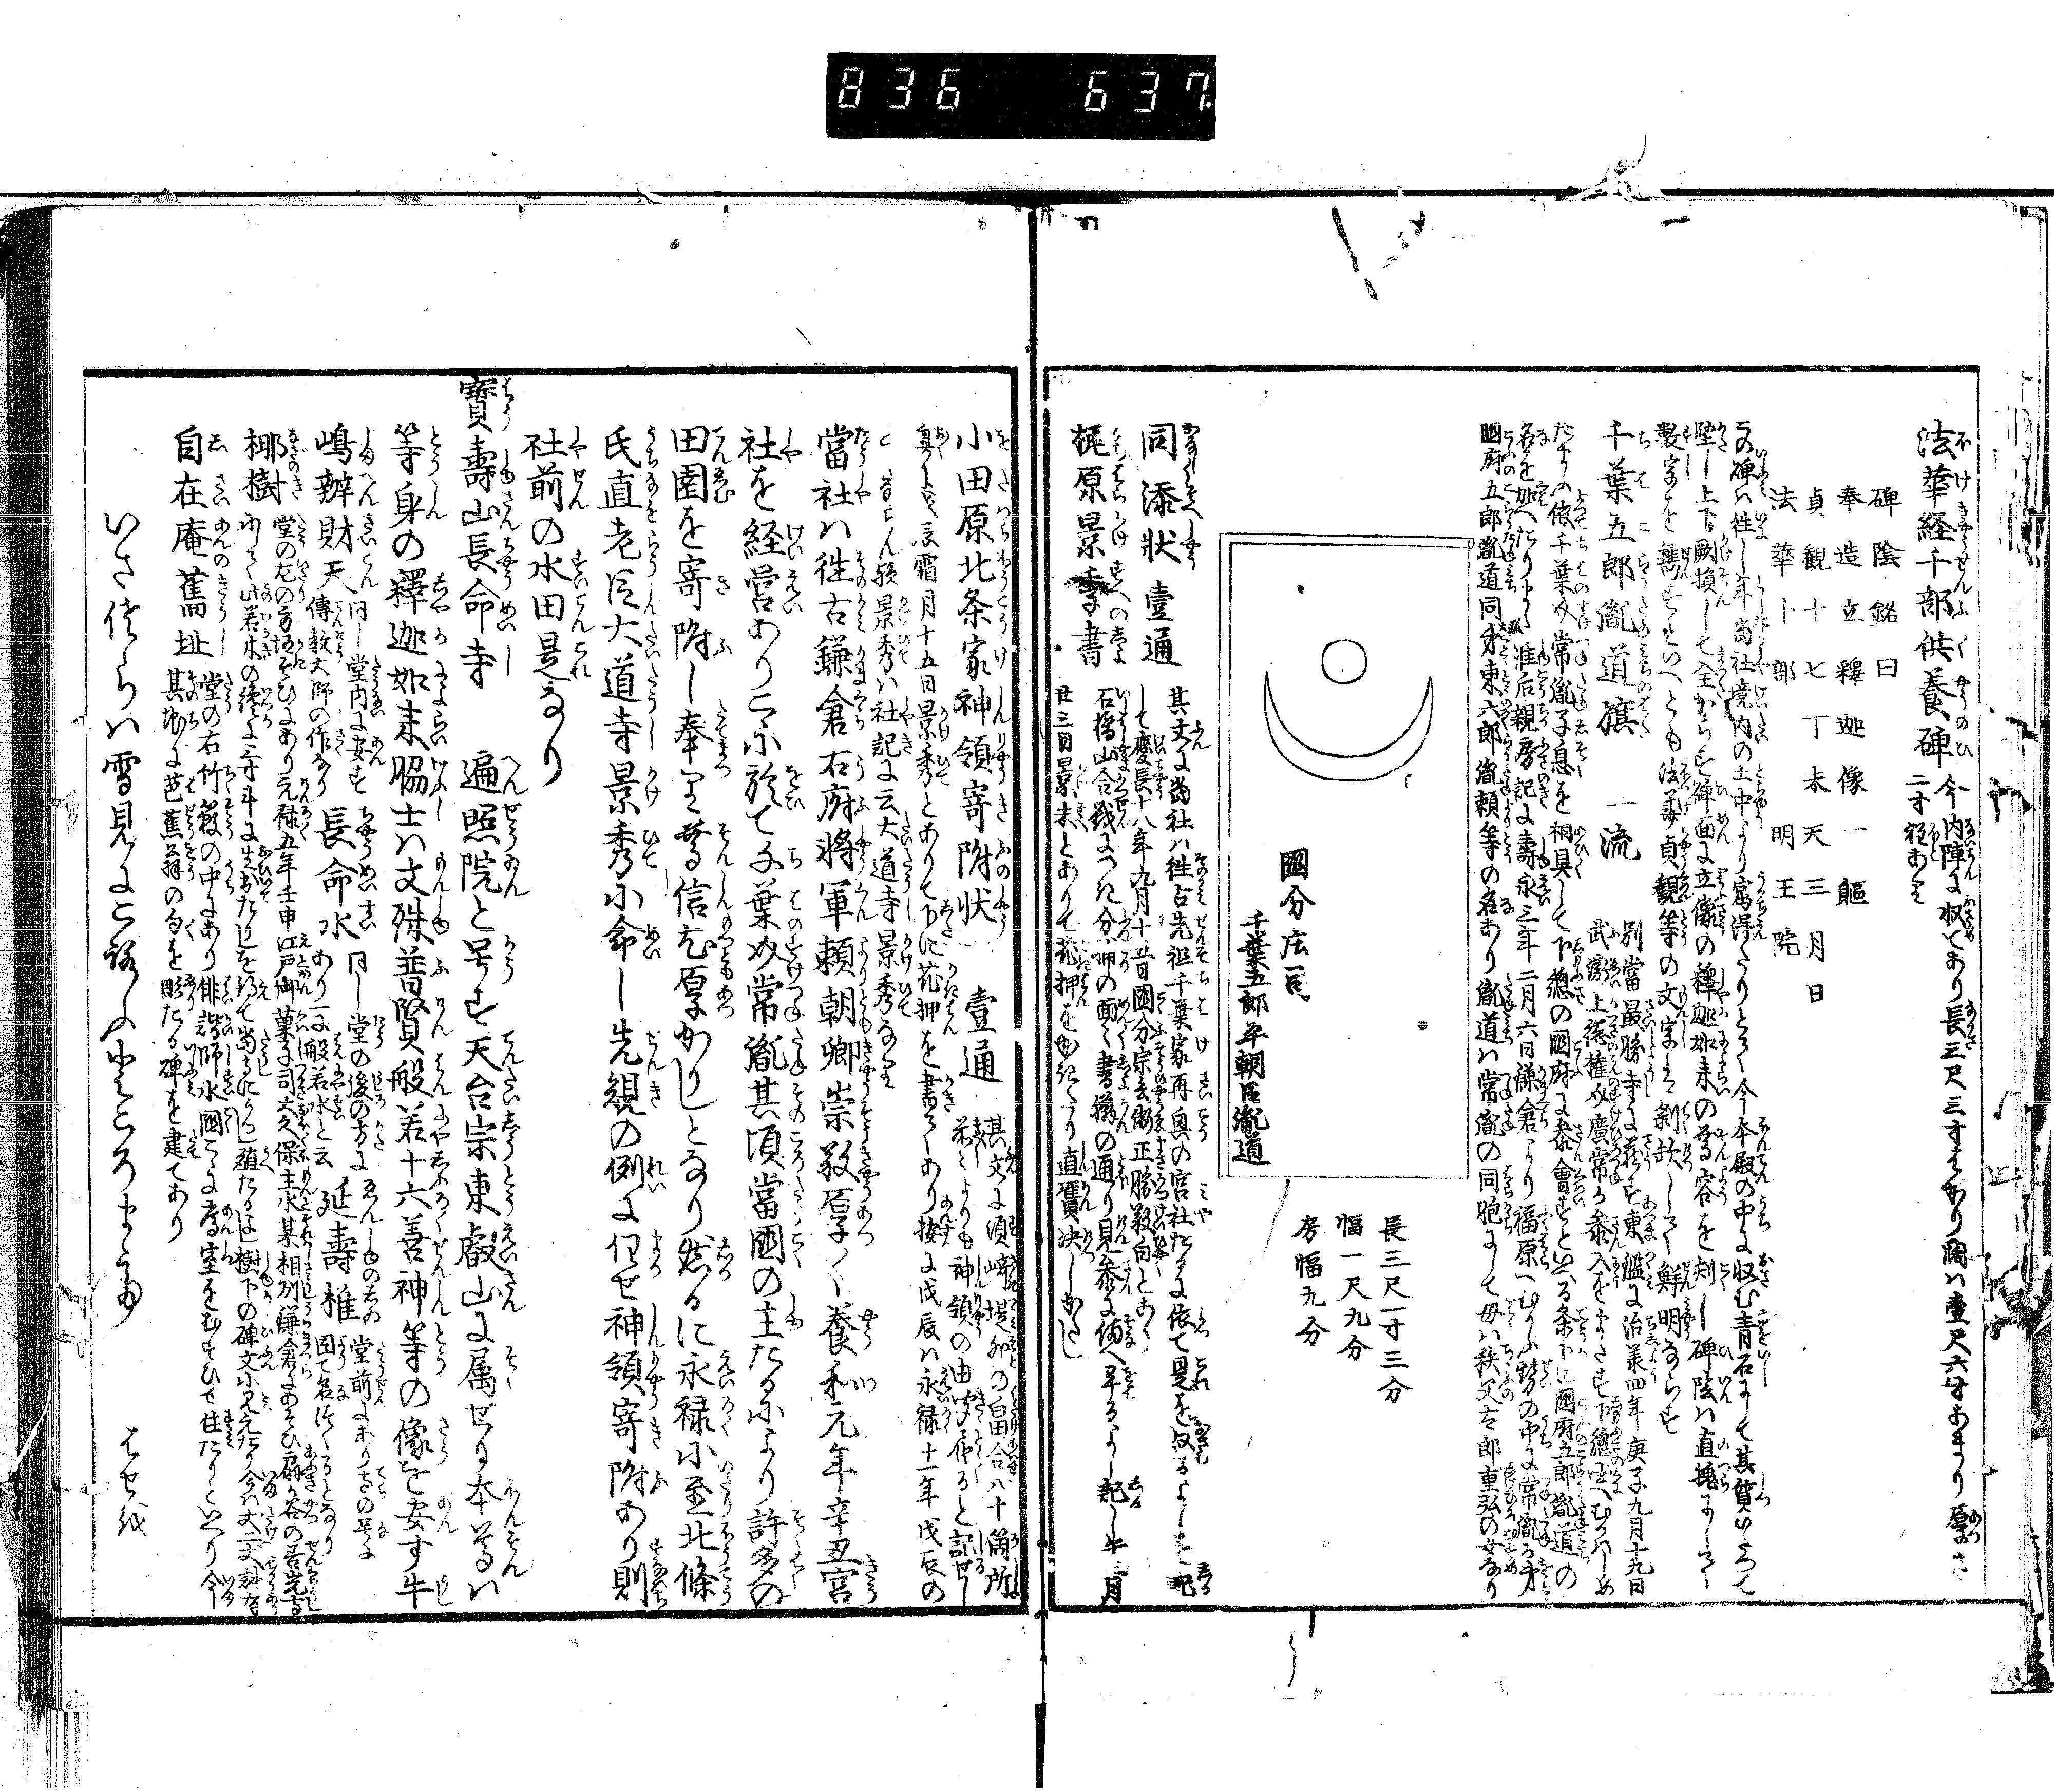 836 637
法華経千部供養碑 今内陣に収てあり長三尺三寸あまり闊ハ壹尺六寸あまり厚さ
二寸程あり
碑陰銘曰
奉造立釋迦像一軀
貞観十七丁未天三月日
法華千部 明王院
この碑ハ往し年當社境内の土中より穿得たりとそ今本殿の中に収む青石にして其質
堅し上下闕損して全からす碑面に立像の釋迦如来の尊容を刻し碑陰ハ直
數字を鐫すといへとも法華貞観等の文字は剥欤して鮮明ならす
千葉五郎胤道籏 一流
別當最勝寺に蔵す東鑑に治承四年庚子九月十九日
武衛上総權介廣常か参入をまたす下總国へむかハしめ
たまふの依千葉介常胤子息を相具して下總の國府に参會すといへる条下に國府五郎胤道の
名を加へたり 准后親房記に壽永三年二月六日鎌倉より福原へむかふ勢の中に常胤か弟
國府五郎胤道同弟東六郎胤頼等の名あり胤道ハ常胤の同胞にして母ハ秩父太郎重弘の女なり
國分庄司
千葉五郎平朝臣胤道
長三尺一寸三分
幅一尺九分
旁幅九分
同添状 壹通
其文に當社ハ往古先祖千葉家再興の宮社たるに依て是を収るよしを記
して慶長十八年九月十五日國分宗玄齋正勝敬白とあり
梶原景季書
石橋山合戦につき分
の面々書
の通り見参に備へ
るよし記し
月
廿三日景季とありて花押をかきたり真贋決しかたし
小田原北条家神領寄附状 壹通
其文に須崎堤外の畠合八十箇所
前々よりも神領の由
と記せし
奥に戊辰霜月十五日景秀とありて下に花押を書してあり按に戊辰ハ永禄十一年戊辰の
景秀ハ社記に云大道寺景秀なり
當社ハ往古鎌倉右府将軍頼朝卿崇敬厚く養和元年辛丑宮
社を経営ありこゝに於て千葉介常胤其頃當國の主たるにより許多の
田園を寄附し奉りて尊信尤厚かりしとなり然るに永禄に至北條
氏直老臣大道寺景秀に命し先規の例に任せ神領寄附あり則
社前の水田是なり
寶壽山長命寺 遍照院と号す天台宗東叡山に属せり本尊ハ
等身の釋迦如来脇士ハ文殊普賢般若十六善神等の像を安す牛
嶋辨財天 同し堂内に安す
傳教大師の作なり
長命水 同し堂の後の方に
あり一に般若水と云
延壽椎 堂前にありその
因て名つくるとなり
梛樹 堂の左の方垣そひにあり元禄五年壬申江戸御菓子司大久保主水某相州鎌倉にあそひ扇か谷の
に此若木の
三寸斗に生出たりしを得て當寺に移し植たりと樹下の碑文に見えたり今ハ丈二丈
自在庵舊址 堂の右竹籔の中にあり俳諧師水國こゝに庵室をむすひて住たりといへり今
其地に芭蕉翁の句を彫たる碑を建てあり
いささらハ雪見にころふところまて
はせを